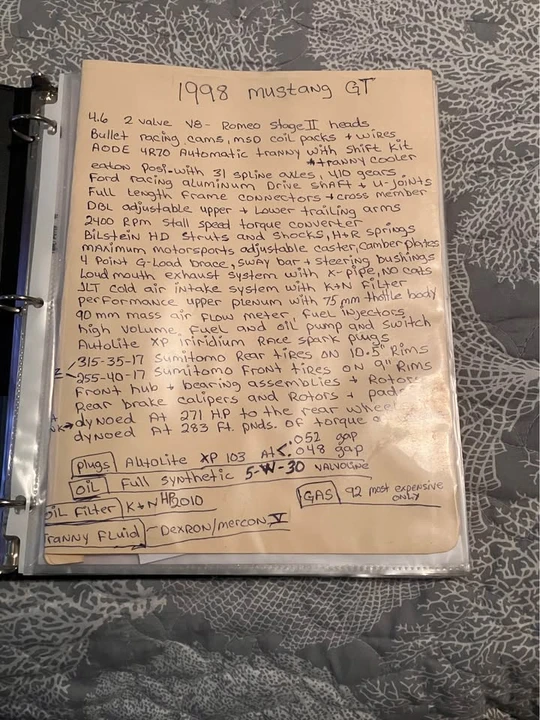 1998 mustang GT
4.6 2 valve V8- Romeo stage II heads
Bullet racing cams, MSD coil packs + wires
AODE 4R70 Automatic tranny with Shift kit
+ tranny cooler
eaton Posi-with 31 spline axles, 410 gears
Ford racing aluminum Drive shaft + U-joints
Full Length Frame connectors + cross member
DBL adjustable upper + Lower trailing arms
2400 RPM stall speed torque converter
Bilstein HD Struts and Shocks, H+R springs
maximum motorsports adjustable caster, camber plates
4 Point G-Load brace, sway bar + steering bushings
Loud mouth exhaust system with X-pipe, NO cats
JLT cold air intake system with K+N Filter
performance upper plenum with 75 mm thottle body
90 mm mass air flow meter, fuel injectors
high volume, fuel and oil pump and switch
Autolite XP Iriridium Race spark plugs
315-35-17 Sumitomo Rear tires ON 10.5" Rims
255-40-17 Sumitomo Front tires ON 9" Rims
Front hub + bearing assemblies + Rotor
Rear brake calipers and Rotors + pad
dynoed At 271 HP to the rear wheel
dynoed At 283 Ft. pnds. of torque
plugs Autolite XP 103 At .052 gap
.048 gap
OIL Full synthetic 5-W-30 VALVOLINE
OIL Filter K+N HP2010
GAS 92 most expensive
ONLY
Tranny Fluid - DEXRON/mercon V